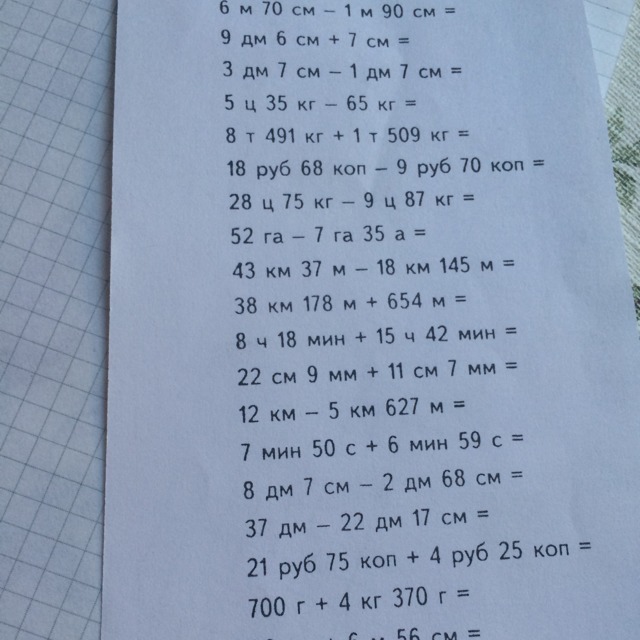 6 м 70 см – 1 м 90 см =
9 дм 6 см + 7 см =
3 дм 7 см – 1 дм 7 см =
5 ц 35 кг – 65 кг =
8 т 491 кг + 1 т 509 кг =
18 руб 68 коп – 9 руб 70 коп =
28 ц 75 кг – 9 ц 87 кг =
52 га – 7 га 35 а =
43 км 37 м – 18 км 145 м =
38 км 178 м + 654 м =
8 ч 18 мин + 15 ч 42 мин =
22 см 9 мм + 11 см 7 мм =
12 км – 5 км 627 м =
7 мин 50 с + 6 мин 59 с =
8 дм 7 см – 2 дм 68 см =
37 дм – 22 дм 17 см =
21 руб 75 коп + 4 руб 25 коп =
700 г + 4 кг 370 г =
56 см =